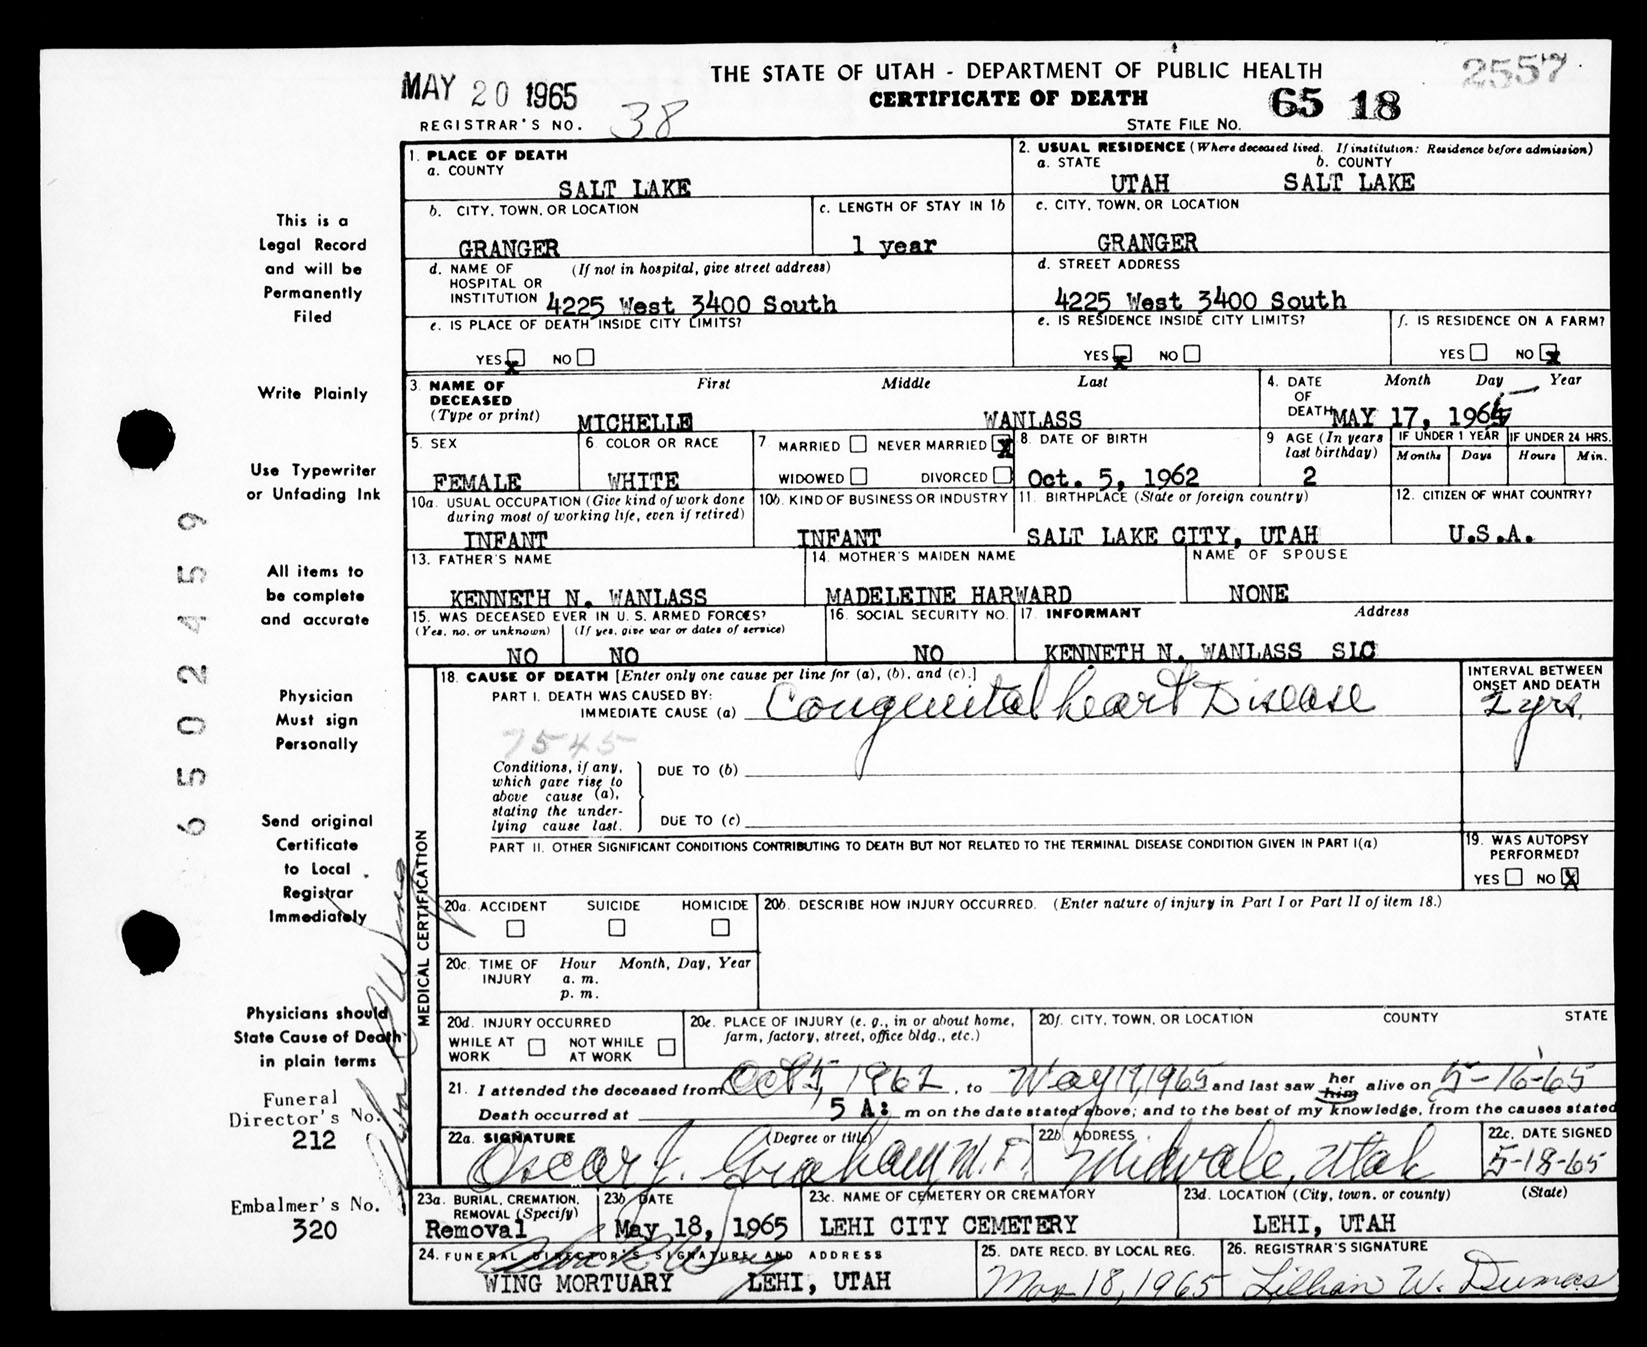 MAY 20 1965
THE STATE OF UTAH - DEPARTMENT OF PUBLIC HEALTH
2557
CERTIFICATE OF DEATH
REGISTRAR'S NO. 38
STATE FILE NO. 65 18
This is a
Legal Record
and will be
Permanently
Filed
Write Plainly
Use Typewriter
or Unfading Ink
All items to
be complete
and accurate
Physician
Must sign
Personally
Send original
Certificate
to Local
Registrar
Immediately
Physicians should
State Cause of Death
in plain terms
Funeral
Director's No.
212
Embalmer's No.
320
6502459
1. PLACE OF DEATH
a. COUNTY
SALT LAKE
2. USUAL RESIDENCE (Where deceased lived. If institution: Residence before admission)
a. STATE b. COUNTY
UTAH SALT LAKE
b. CITY, TOWN, OR LOCATION
GRANGER
c. LENGTH OF STAY IN 1b
1 year
c. CITY, TOWN, OR LOCATION
GRANGER
d. NAME OF (If not in hospital, give street address)
HOSPITAL OR
INSTITUTION 4225 West 3400 South
d. STREET ADDRESS
4225 West 3400 South
e. IS PLACE OF DEATH INSIDE CITY LIMITS?
YES X NO
e. IS RESIDENCE INSIDE CITY LIMITS?
YES X NO
f. IS RESIDENCE ON A FARM?
YES NO X
3. NAME OF DECEASED First Middle Last
(Type or print) MICHELLE WANLASS
4. DATE OF DEATH Month Day Year
MAY 17, 1965
5. SEX
FEMALE
6. COLOR OR RACE
WHITE
7 MARRIED NEVER MARRIED X
WIDOWED DIVORCED
8. DATE OF BIRTH
Oct. 5, 1962
9 AGE (In years last birthday)
2
IF UNDER 1 YEAR IF UNDER 24 HRS.
Months Days Hours Min.
10a. USUAL OCCUPATION (Give kind of work done
during most of working life, even if retired)
INFANT
10b. KIND OF BUSINESS OR INDUSTRY
INFANT
11. BIRTHPLACE (State or foreign country)
SALT LAKE CITY, UTAH
12. CITIZEN OF WHAT COUNTRY?
U.S.A.
13. FATHER'S NAME
KENNETH N. WANLASS
14. MOTHER'S MAIDEN NAME
MADELEINE HARWARD
NAME OF SPOUSE
NONE
15. WAS DECEASED EVER IN U. S. ARMED FORCES?
(Yes, no, or unknown) (If yes, give war or dates of service)
NO NO
16. SOCIAL SECURITY NO.
NO
17. INFORMANT Address
KENNETH N. WANLASS SLC
MEDICAL CERTIFICATION
18. CAUSE OF DEATH [Enter only one cause per line for (a), (b), and (c).]
PART I. DEATH WAS CAUSED BY:
IMMEDIATE CAUSE (a) Congenital heart Disease
INTERVAL BETWEEN
ONSET AND DEATH
2 yrs.
7545
Conditions, if any,
which gave rise to
above cause (a),
stating the under-
lying cause last.
DUE TO (b)
DUE TO (c)
PART II. OTHER SIGNIFICANT CONDITIONS CONTRIBUTING TO DEATH BUT NOT RELATED TO THE TERMINAL DISEASE CONDITION GIVEN IN PART I(a)
19. WAS AUTOPSY
PERFORMED?
YES NO X
20a. ACCIDENT SUICIDE HOMICIDE
20b. DESCRIBE HOW INJURY OCCURRED. (Enter nature of injury in Part I or Part II of item 18.)
20c. TIME OF INJURY Hour Month, Day, Year
a. m.
p. m.
20d. INJURY OCCURRED
WHILE AT WORK NOT WHILE AT WORK
20e. PLACE OF INJURY (e. g., in or about home,
farm, factory, street, office bldg., etc.)
20f. CITY, TOWN, OR LOCATION COUNTY STATE
21. I attended the deceased from Oct 5, 1962, to May 17, 1965 and last saw her him alive on 5-16-65
Death occurred at 5 A: m on the date stated above; and to the best of my knowledge, from the causes stated
22a. SIGNATURE (Degree or title)
Oscar J. Graham, M. D.
22b. ADDRESS
Midvale, Utah
22c. DATE SIGNED
5-18-65
23a. BURIAL, CREMATION,
REMOVAL (Specify)
Removal
23b DATE
May 18, 1965
23c. NAME OF CEMETERY OR CREMATORY
LEHI CITY CEMETERY
23d. LOCATION (City, town, or county) (State)
LEHI, UTAH
24. FUNERAL DIRECTOR'S SIGNATURE AND ADDRESS
WING MORTUARY LEHI, UTAH
25. DATE RECD. BY LOCAL REG.
May 18, 1965
26. REGISTRAR'S SIGNATURE
Lillian W. Dumas